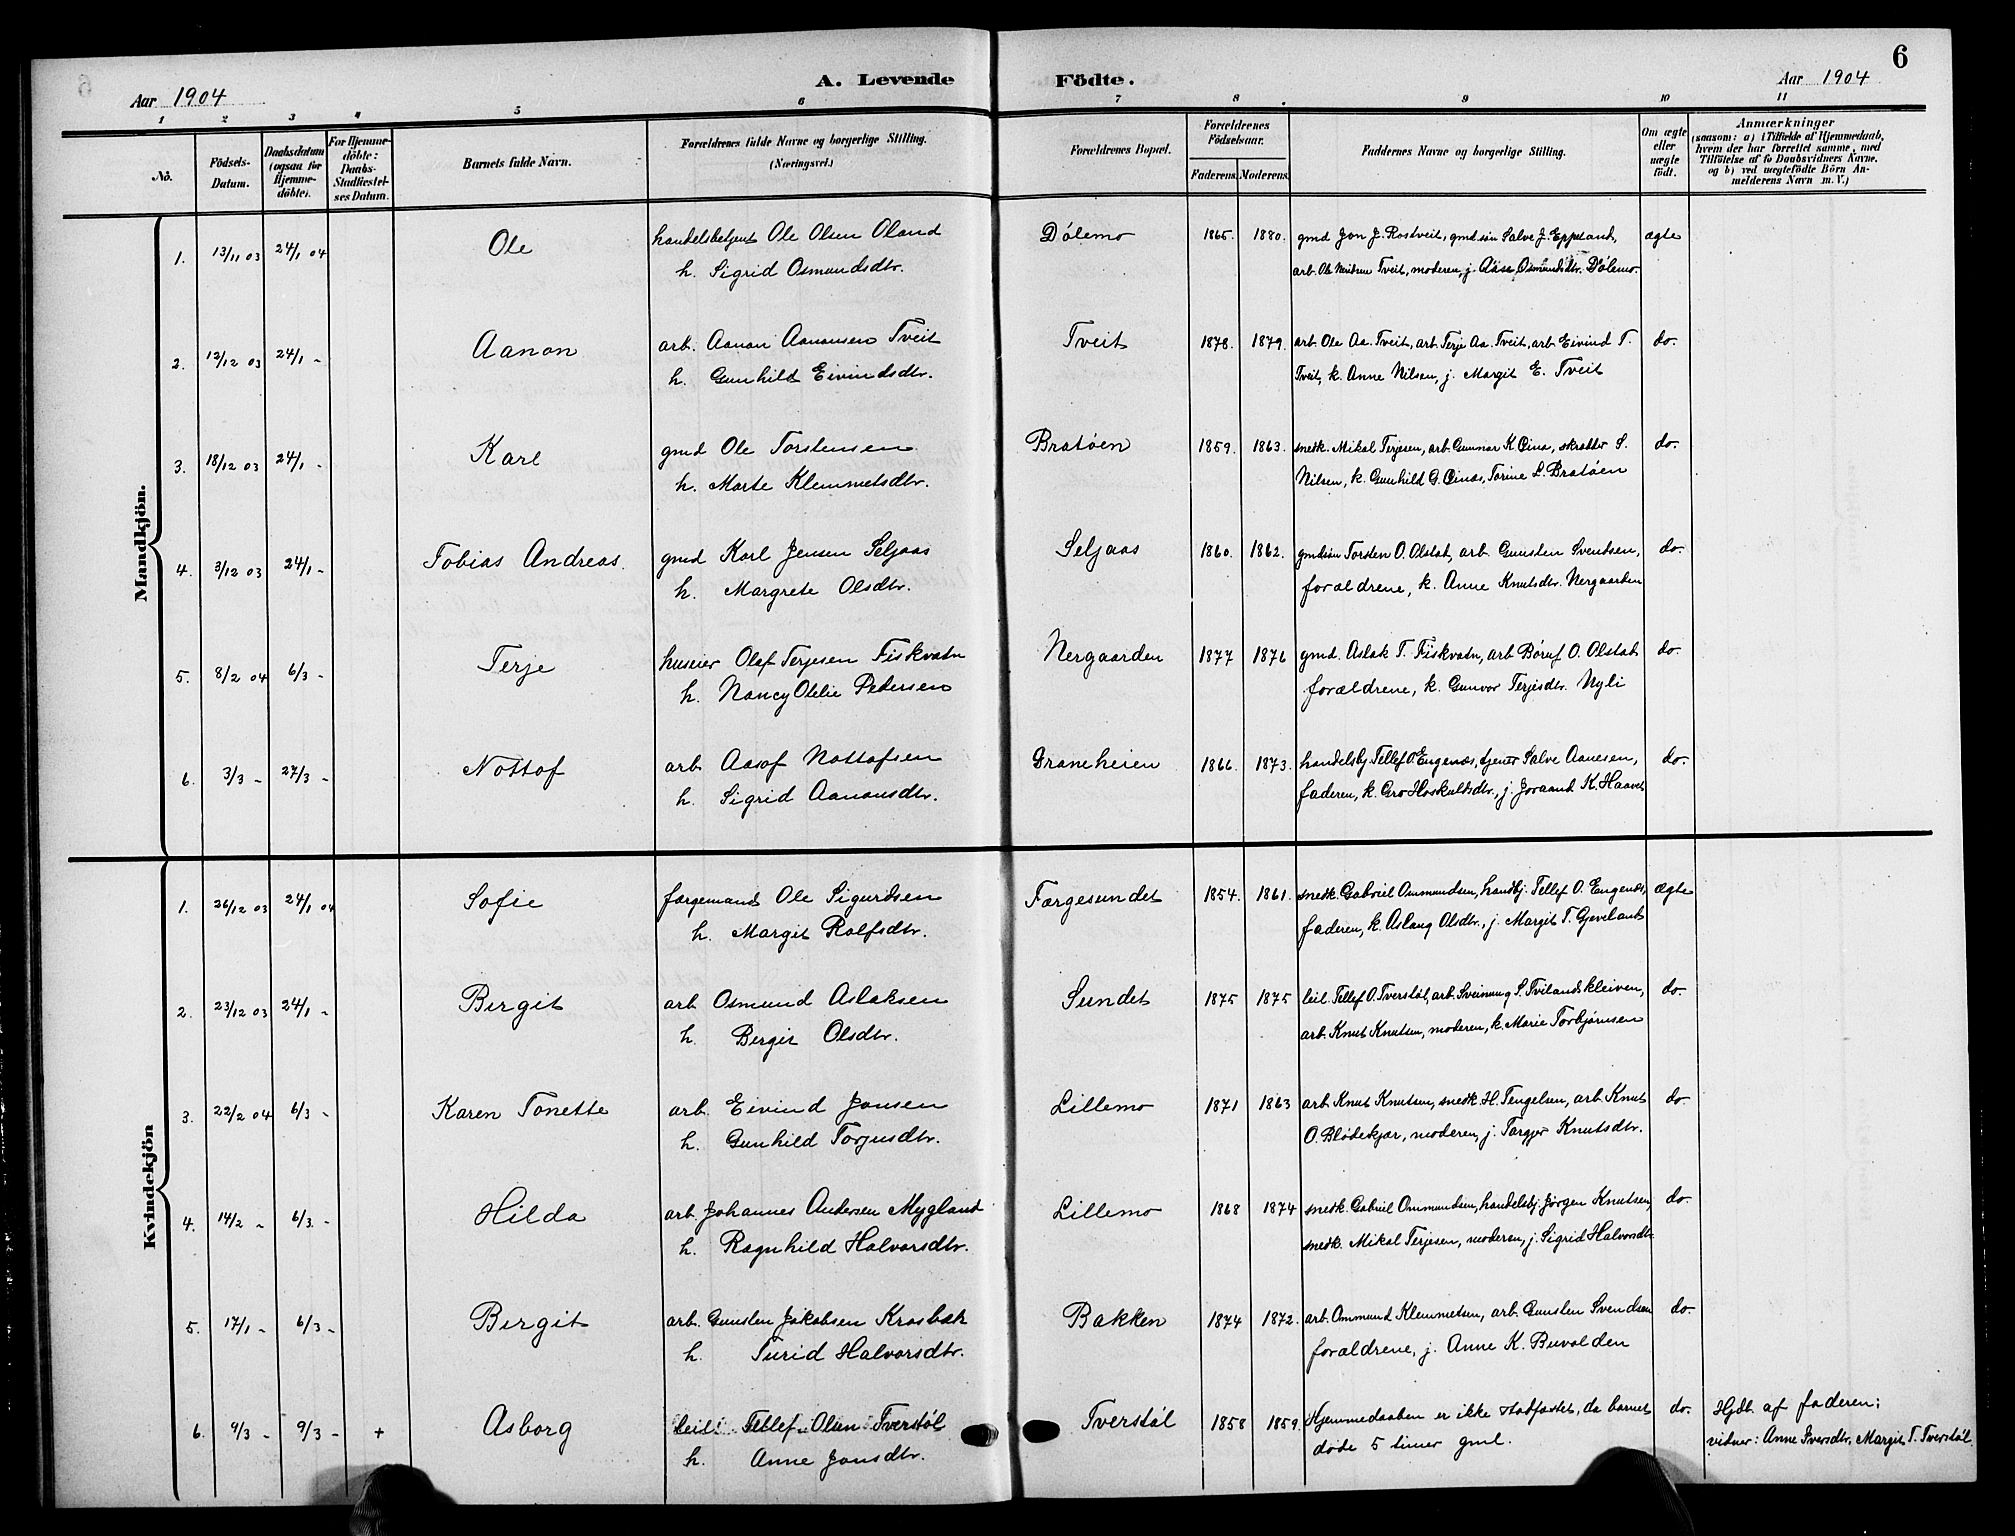 6
Aar 1904 A. Levende Födte. Aar 1904
1 2 3 4 5 6 7 8 9 10 11
No.
Födsels-Datum.
Daabsdatum (ogsaa for Hjemmedöbte).
For Hjemmedöbte: Daabs-Stadfæstelses Datum.
Barnets fulde Navn.
Forældrenes fulde Navne og borgerlige Stilling. (Næringsvei.)
Forældrenes Bopæl.
Forældrenes Födselsaar. Faderens. Moderens.
Faddernes Navne og borgerlige Stilling.
Om ægte eller uægte født.
Anmærkninger (saasom: a) i Tilfælde af Hjemmedaab, hvem der har forrettet samme, med Tilföielse af to Daabsvidners Navne, og b) ved uægtefödte Börn Anmelderens Navn m. V.)
Mandkjön.
1. 13/11 03 24/1 04 Ole handelsbetjent Ole Olsen Oland Dölemo 1865. 1880. gmd Jon J. Rostveit, gmd.søn Salve J. Eppeland, ægte
h. Sigrid Osmundsdtr. arb. Ole Nerilsen Tveit, moderen, j. Aase Osmundsdtr. Dölemo.
2. 12/12 03 24/1 - Aanon arb. Aanon Aanonsen Tveit Tveit 1878. 1879. arb. Ole Aa. Tveit, arb. Terje Aa. Tveit, arb Eivind T. do.
h. Gunhild Eivindsdtr. Tveit, k. Anne Nilsen, j. Margit E. Tveit
3. 18/12 03 24/1 - Karl gmd Ole Torstensen Bratöen 1859. 1863. snedk. Mikal Terjesen, arb. Gunnar K. , S. do.
h. Marte Klemmetsdtr. Nilsen, k. Gunhild G. , Torine L. Bratöen
4. 3/12 03 24/1 - Tobias Andreas. gmd Karl Jensen Seljaas Seljaas 1860. 1862. gmdsøn Torsten O. Olstad, arb. Gunsten Svendsen, do.
h. Margrete Olsdtr. forældrene, k. Anne Knutsdtr. Nergaarden
5. 8/2 04 6/3 - Terje huseier Olaf Terjesen Fiskvatn Nergaarden 1877 1876 gmd. Aslak T. Fiskvatn, arb Børuf O. Olstad do.
h. Nancy Otelie Pedersen forældrene, k. Gunvor Terjesdtr. Nyli
6. 3/3 - 27/3 - Nottof arb. Aasof Nottofsen Graneheien 1866. 1873. handelsbj. Tellef O. Engenæs, tjener Salve Aanesen, do.
h. Sigrid Aanonsdtr. faderen, k. Gro Hoskuldsdtr., j. Joraand K. Haavet
Kvindekjön
1. 26/12 03 24/1 04 Sofie færgemand Ole Sigurdsen Færgesundet 1854. 1861. snedk. Gabriel Ommundsen, handbj. Tellef O. Engenæs, ægte
h. Margit Rolfsdtr. faderen, k. Aslaug Olsdtr., j. Margit T. Gjeveland
2. 23/12 03 24/1 - Bergit arb Osmund Aslaksen Sundet 1875 1875 leil. Tellef O. Tverstøl, arb. Sveinung S. Tvilandskleiven, do.
h. Bergit Olsdtr. arb. Knut Knutsen, moderen, k. Marie Torbjørnsen
3. 22/2 04 6/3 - Karen Tonette arb. Eivind Jonsen Lillemo 1871 1863 arb. Knut Knutsen, snedk. H. Tengelsen, arb. Knut do.
h. Gunhild Torjusdtr. O. Blødekjær, moderen, j. Torgjer Knutsdtr.
4. 14/2 - 6/3. - Hilda arb. Johannes Andersen Mygland Lillemo 1868 1874 snedk. Gabriel Ommundsen, handelsbj. Jørgen Knutsen, do.
h. Ragnhild Halvorsdtr. snedk. Mikal Terjesen, moderen, j. Sigrid Halvorsdtr
5. 17/1 - 6/3 - Bergit arb. Gunsten Jakobsen Krosbæk Bakken 1874 1872. arb. Ommund Klemmetsen, arb. Gunsten Svendsen do.
h. Turid Halvorsdtr. forældrene, j. Anne K. Buvolden
6. 9/3 - 9/3 - + Asborg leil. Tellef Olsen Tverstøl Tverstøl 1858 1859. Hjemmedaaben er ikke stadfæstet, da barnet do. Hjdb. af faderen;
h. Anne Jonsdtr. døde 5 timer gml. vidner: Anne Iversdtr, Margit T. Tverstøl.